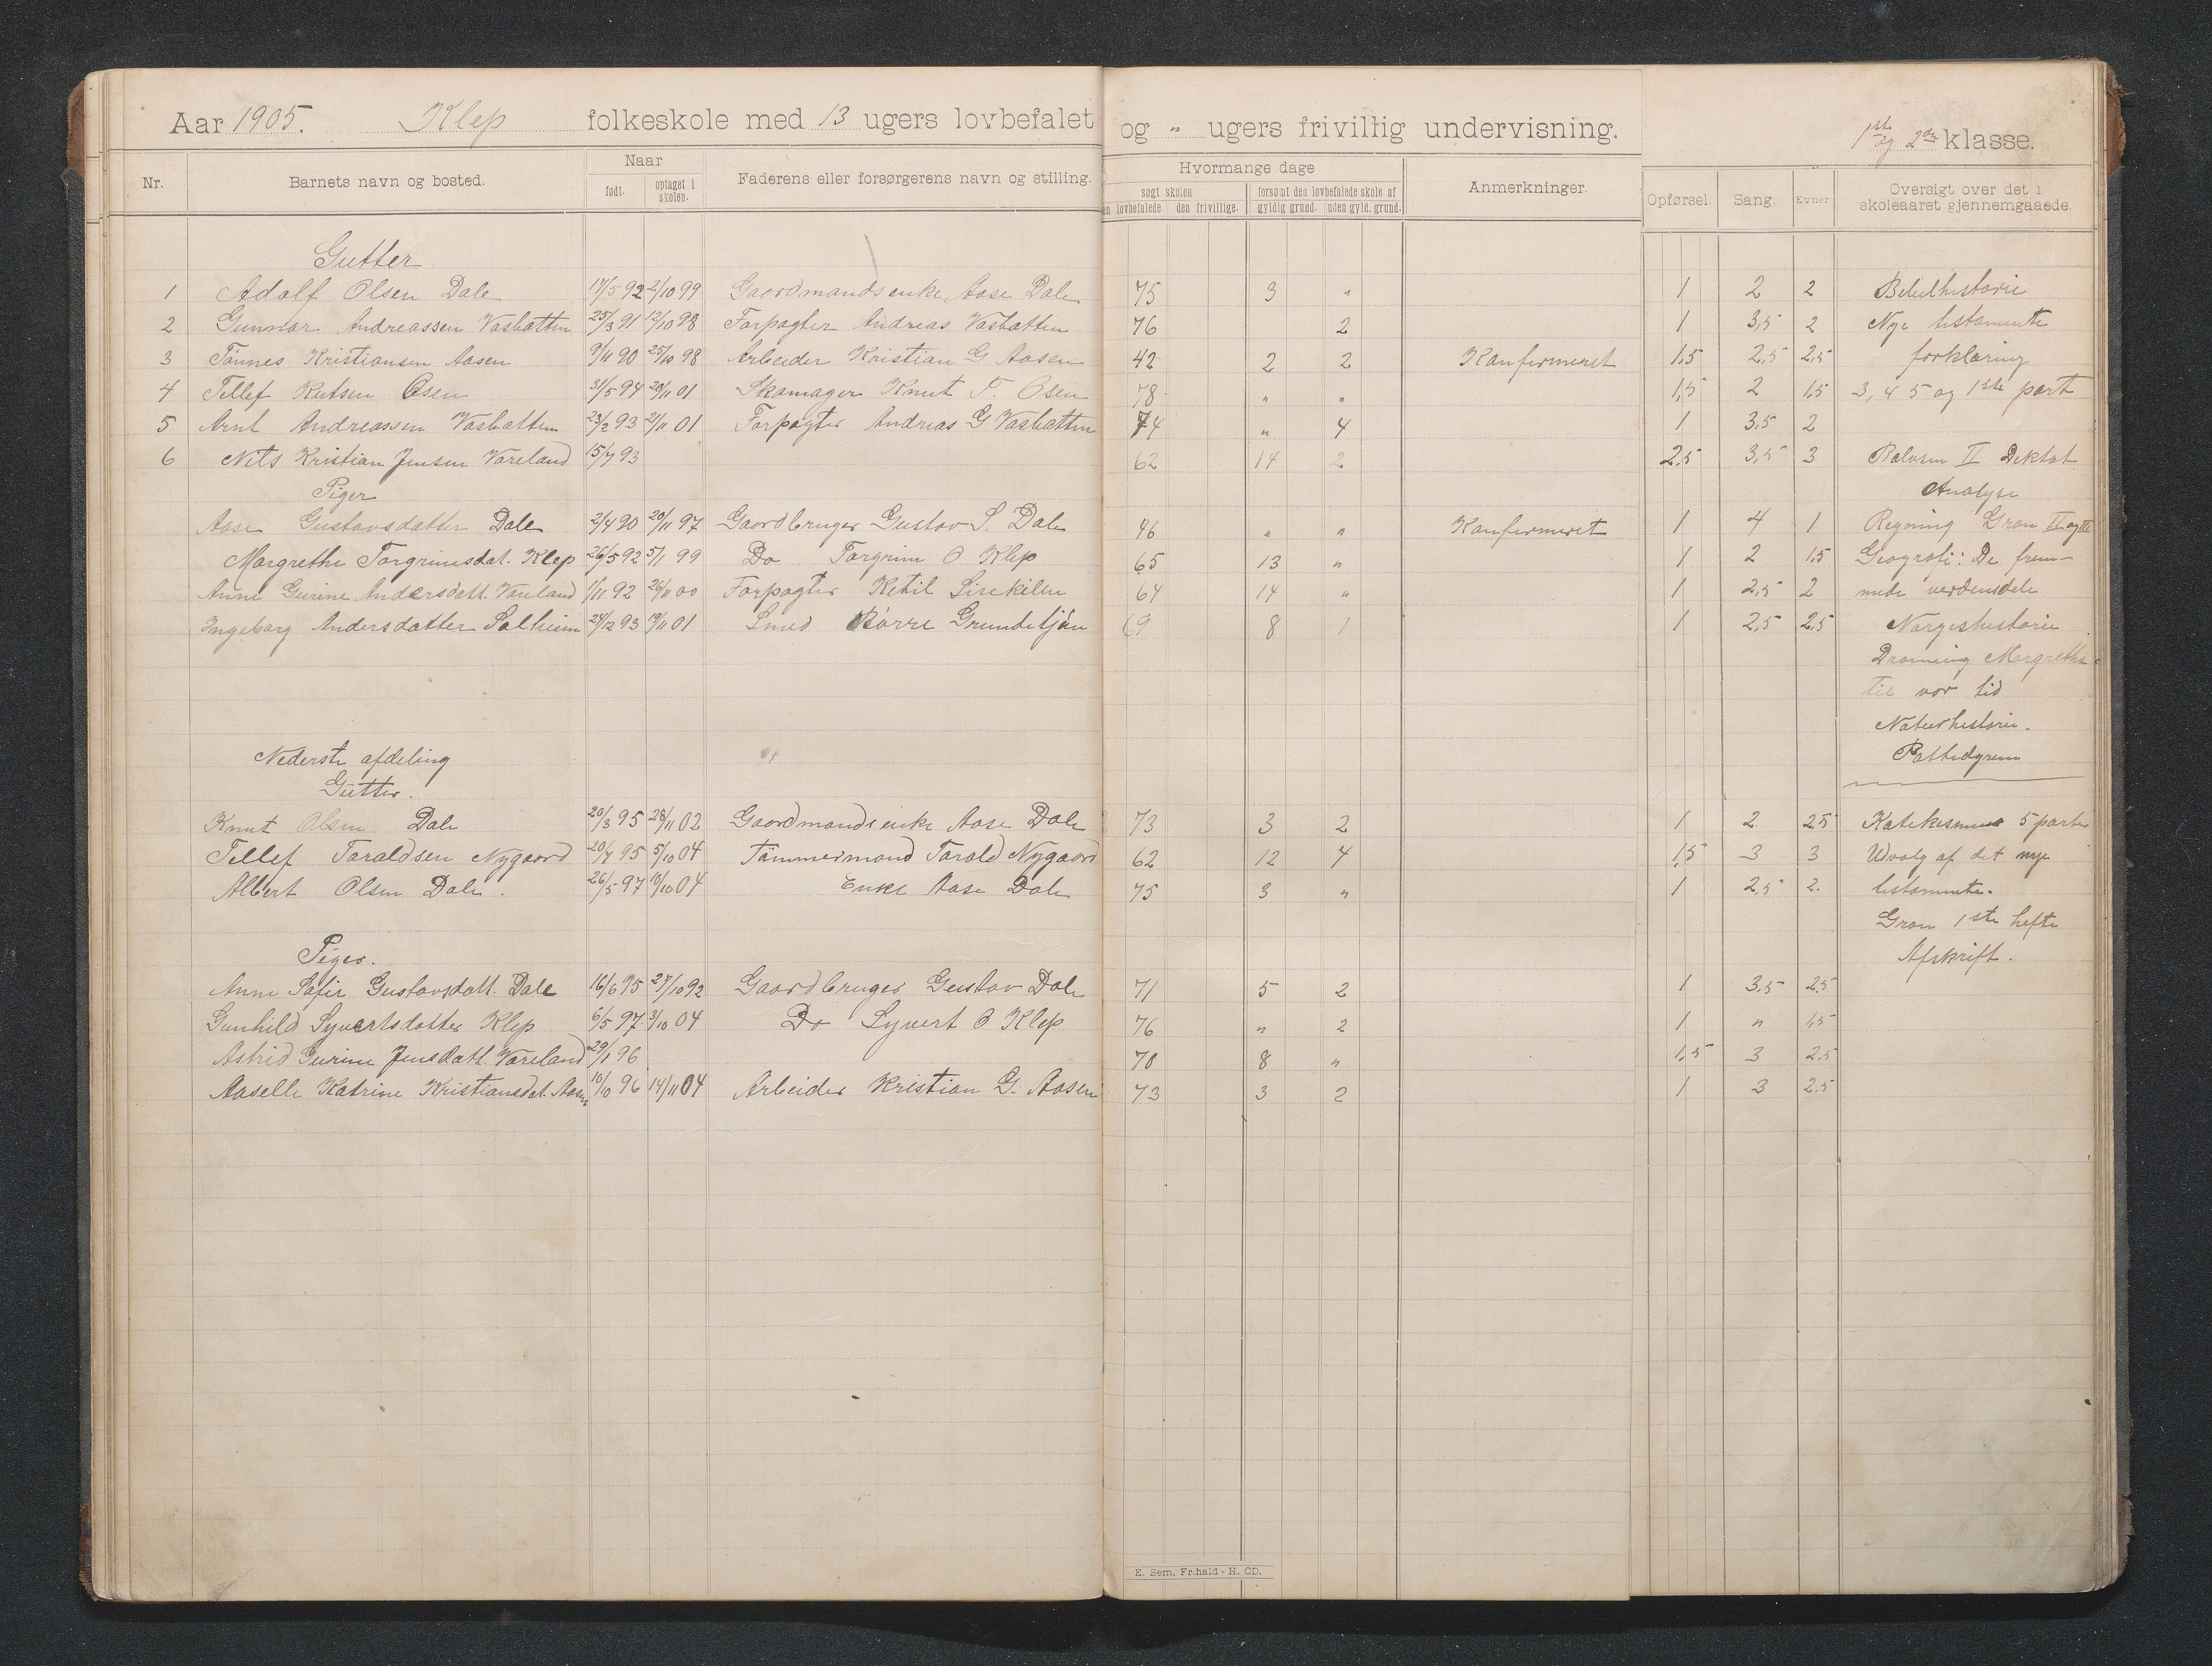 Aar 1905. Klep folkeskole med 13 ugers lovbefalet og " ugers frivillig undervisning. 1ste og 2den klasse.
Nr. Barnets navn og bosted. Naar født. optaget i skolen. Faderens eller forsørgerens navn og stilling. Hvormange dage søgt skolen den lovbefalede den frivillige. forsømt den lovbefalede skole af gyldig grund. uden gyld. grund. Anmerkninger. Opførsel. Sang. Evner Oversigt over det i skoleaaret gjennemgaaede.
Gutter
1 Adolf Olsen Dale 17/5 92 2/10 99 Gaardmandsenke Aase Dale 75 3 " 1 2 2 Bibelhistorie
2 Gunnar Andreassen Vasbotten 25/3 91 12/10 98 Forpagter Andreas Vasbotten 76 2 1 3,5 2 Nye testamente
3 Tønnes Kristiansen Aasen 9/11 90 25/10 98 Arbeider Kristian G Aasen 42 2 2 Konfirmeret 1,5 2,5 2,5 forklaring
4 Tellef Knutsen Osen 31/5 94 20/11 01 Skomager Knut T. Osen 78 " " 1,5 2 1,5 3, 4 5 og 1ste part
5 Arnt Andreassen Vasbotten 23/2 93 21/11 01 Forpagter Andreas G Vasbotten 74 " 4 1 3,5 2
6 Nils Kristian Jensen Vareland 15/7 93 62 14 2 2,5 3,5 3 Paulsen II Diktat
Piger Analyse
Aase Gustavsdatter Dale 2/4 90 20/11 97 Gaardbruger Gustav S. Dale 46 " " Konfirmeret 1 4 1 Regning Gron II og III
Margrethe Torgrimsdat. Klep 26/5 92 5/1 99 Do Torgrim O Klep 65 13 " 1 2 1,5 Geografi: De frem-
Anne Gurine Andersdatt. Vareland 1/11 92 26/11 00 Forpagter Ketil Lirekilen 64 14 " 1 2,5 2 mede verdensdele
Ingeborg Andersdatter Solheim 24/12 93 19/11 01 Smed Børre Grundetjøn 69 8 1 1 2,5 2,5 Norgeshistorie
Dronning Margrethe
til vor tid
Naturhistorie.
Nederste afdeling Pattedyrene
Gutter.
Knut Olsen Dale 20/3 95 28/11 02 Gaardmandsenke Aase Dale 73 3 2 1 2 2,5 Katekismus 5 parter
Tellef Taraldsen Nygaard 20/7 95 5/10 04 Tømmermand Tarald Nygaard 62 12 4 1,5 3 3 Udvalg af det nye
Albert Olsen Dale. 26/5 97 10/10 04 Enke Aase Dale 75 3 " 1 2,5 2. testamente.
Gron 1ste hefte
Piger. Afskrift.
Anne Sofie Gustavsdatt. Dale 16/6 95 27/10 92 Gaardbruger Gustav Dale 71 5 2 1 3,5 2,5
Gunhild Syvertsdatter Klep 6/5 97 3/10 04 Do Syvert O Klep 76 " 2 1 " 1,5
Astrid Gurine Jensdatt. Vareland 29/1 96 70 8 " 1,5 3 2,5
Aaselle Katrine Kristiansdat. Aasen 10/10 96 14/11 04 Arbeider Kristian G. Aasen 73 3 2 1 3 2,5
E. Sem. Fr.hald - H. CD.